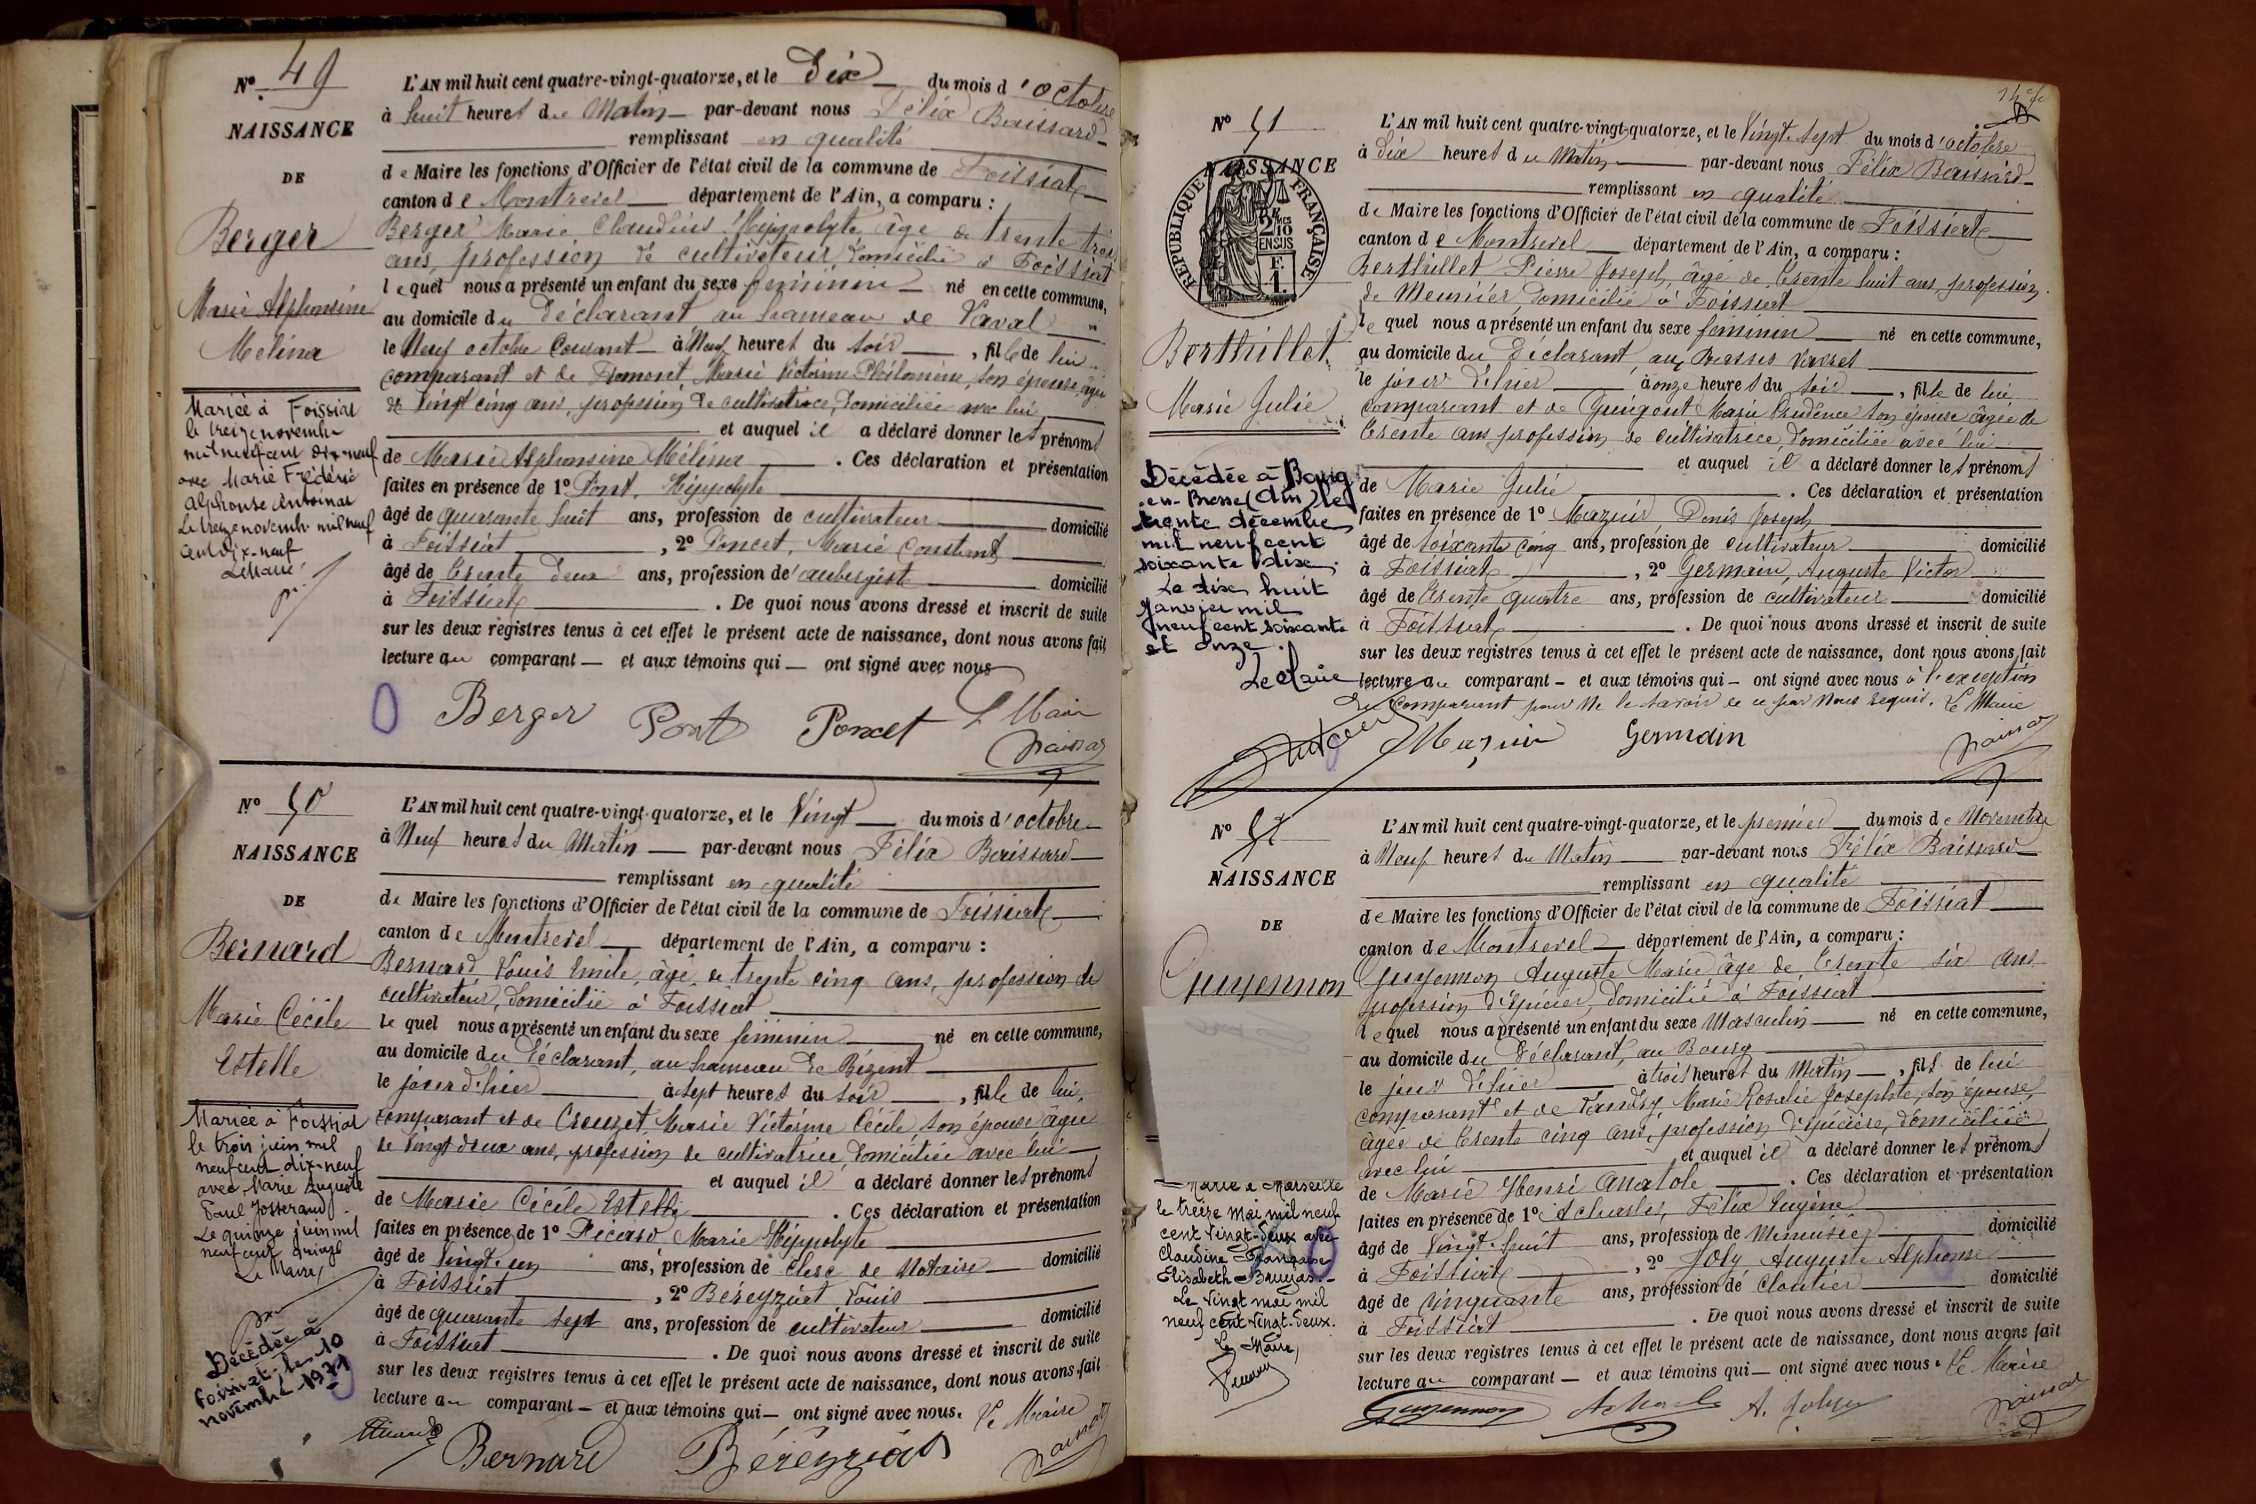 N° 49
NAISSANCE
DE
Berger
Marie Alphonsine
Mélina
Mariée à Foissiat
le treize novembre
mil neuf cent dix-neuf
avec Marie Frédéric
Alphonse Antoinat
Le treize novembre mil neuf
cent dix-neuf
Le Maire
L'AN mil huit cent quatre-vingt-quatorze, et le Dix du mois d'octobre
à huit heures du Matin par-devant nous Félix Baissard
remplissant en qualité
de Maire les fonctions d'Officier de l'état civil de la commune de Foissiat
canton de Montrevel département de l'Ain, a comparu :
Berger Marie Claudius Hippolyte âgé de trente trois
ans, profession de cultivateur domicilié à Foissiat
lequel nous a présenté un enfant du sexe féminin né en cette commune,
au domicile du Déclarant au hameau de Vaval
le Neuf octobre Courant à Neuf heures du soir, fille de lui
comparant et de Domont Marie Victorine Philomène, son épouse, âgée
de vingt cinq ans, profession de cultivatrice, domiciliée avec lui
et auquel il a déclaré donner les prénoms
de Marie Alphonsine Mélina. Ces déclaration et présentation
faites en présence de 1° Pont, Hippolyte
âgé de quarante huit ans, profession de cultivateur domicilié
à Foissiat, 2° Poncet, Marie Constant
âgé de trente deux ans, profession de aubergiste domicilié
à Foissiat. De quoi nous avons dressé et inscrit de suite
sur les deux registres tenus à cet effet le présent acte de naissance, dont nous avons fait
lecture au comparant et aux témoins qui ont signé avec nous
Berger Pont Poncet Le Maire
Baissard
N° 50
NAISSANCE
DE
Bernard
Marie Cécile
Estelle
Mariée à Foissiat
le trois juin mil
neuf cent dix-neuf
avec Marie Auguste
Paul Josserand
Le quinze juin mil
neuf cent
Le Maire,
Décédée à
Foissiat, le 10
novembre 1971
L'AN mil huit cent quatre-vingt-quatorze, et le Vingt du mois d'octobre
à Neuf heures du Matin par-devant nous Félix Baissard
remplissant en qualité
de Maire les fonctions d'Officier de l'état civil de la commune de Foissiat
canton de Montrevel département de l'Ain, a comparu :
Bernard, Louis Emile, âgé de trente cinq ans, profession de
cultivateur, domicilié à Foissiat
lequel nous a présenté un enfant du sexe féminin né en cette commune,
au domicile du Déclarant, au hameau de Bézent
le jour d'hier à sept heures du soir, fille de lui,
comparant et de Creuzet, Marie Victorine Cécile son épouse âgée
de vingt deux ans, profession de cultivatrice, domiciliée avec lui
et auquel il a déclaré donner les prénoms
de Marie Cécile Estelle. Ces déclaration et présentation
faites en présence de 1° Picard Marie Hippolyte
âgé de vingt-un ans, profession de clerc de Notaire domicilié
à Foissiat, 2° Béréyziat Louis
âgé de quarante sept ans, profession de cultivateur domicilié
à Foissiat. De quoi nous avons dressé et inscrit de suite
sur les deux registres tenus à cet effet le présent acte de naissance, dont nous avons fait
lecture au comparant et aux témoins qui ont signé avec nous. Le Maire
Bernard Béréyziat Baissard
N° 51
NAISSANCE
RÉPUBLIQUE FRANÇAISE
2/10
EN SUS
F.
1.
Berthillet
Marie Julie
Décédée à Bourg
en-Bresse (Ain) le
trente décembre
mil neuf cent
soixante dix.
Le dix huit
janvier mil
neuf cent soixante
et onze.
Le Maire
L'AN mil huit cent quatre-vingt-quatorze, et le Vingt-sept du mois d'octobre
à Dix heures du Matin par-devant nous Félix Baissard
remplissant en qualité
de Maire les fonctions d'Officier de l'état civil de la commune de Foissiat
canton de Montrevel département de l'Ain, a comparu :
Berthillet Pierre Joseph, âgé de trente huit ans, profession
de Meunier, domicilié à Foissiat
lequel nous a présenté un enfant du sexe féminin né en cette commune,
au domicile du Déclarant, aux
le jour d'hier à onze heures du soir, fille de lui,
comparant et de Guigout Marie Prudence son épouse âgée de
trente ans profession de cultivatrice domiciliée avec lui
et auquel il a déclaré donner les prénoms
de Marie Julie. Ces déclaration et présentation
faites en présence de 1° Mazuir Denis Joseph
âgé de soixante cinq ans, profession de cultivateur domicilié
à Foissiat, 2° Germain, Auguste Victor
âgé de trente quatre ans, profession de cultivateur domicilié
à Foissiat. De quoi nous avons dressé et inscrit de suite
sur les deux registres tenus à cet effet le présent acte de naissance, dont nous avons fait
lecture au comparant et aux témoins qui ont signé avec nous à l'exception
du comparant pour ne le savoir de ce par nous requis. Le Maire
Mazuir Germain Baissard
N° 52
NAISSANCE
DE
Guyennon
Marié à Marseille
le treize mai mil neuf
cent vingt-deux avec
Claudine Françoise
Elisabeth Bruyas.
Le vingt mai mil
neuf cent vingt-deux.
Le Maire,
L'AN mil huit cent quatre-vingt-quatorze, et le premier du mois de Novembre
à Neuf heures du Matin par-devant nous Félix Baissard
remplissant en qualité
de Maire les fonctions d'Officier de l'état civil de la commune de Foissiat
canton de Montrevel département de l'Ain, a comparu :
Guyennon Auguste Marie âgé de trente six ans
profession d'épicier, domicilié à Foissiat
lequel nous a présenté un enfant du sexe Masculin né en cette commune,
au domicile du Déclarant, au Bourg
le jour d'hier à trois heures du Matin, fils de lui
comparant et de Marie Rosalie Josephte, son épouse,
âgée de trente cinq ans, profession d'épicière, domiciliée
avec lui et auquel il a déclaré donner les prénoms
de Marie Henri Anatole. Ces déclaration et présentation
faites en présence de 1° Acharles, Félix Eugène
âgé de vingt-huit ans, profession de Menuisier domicilié
à Foissiat, 2° Joly Auguste Alphonse
âgé de cinquante ans, profession de cloutier domicilié
à Foissiat. De quoi nous avons dressé et inscrit de suite
sur les deux registres tenus à cet effet le présent acte de naissance, dont nous avons fait
lecture au comparant et aux témoins qui ont signé avec nous. Le Maire
Guyennon Acharles A. Joly Baissard